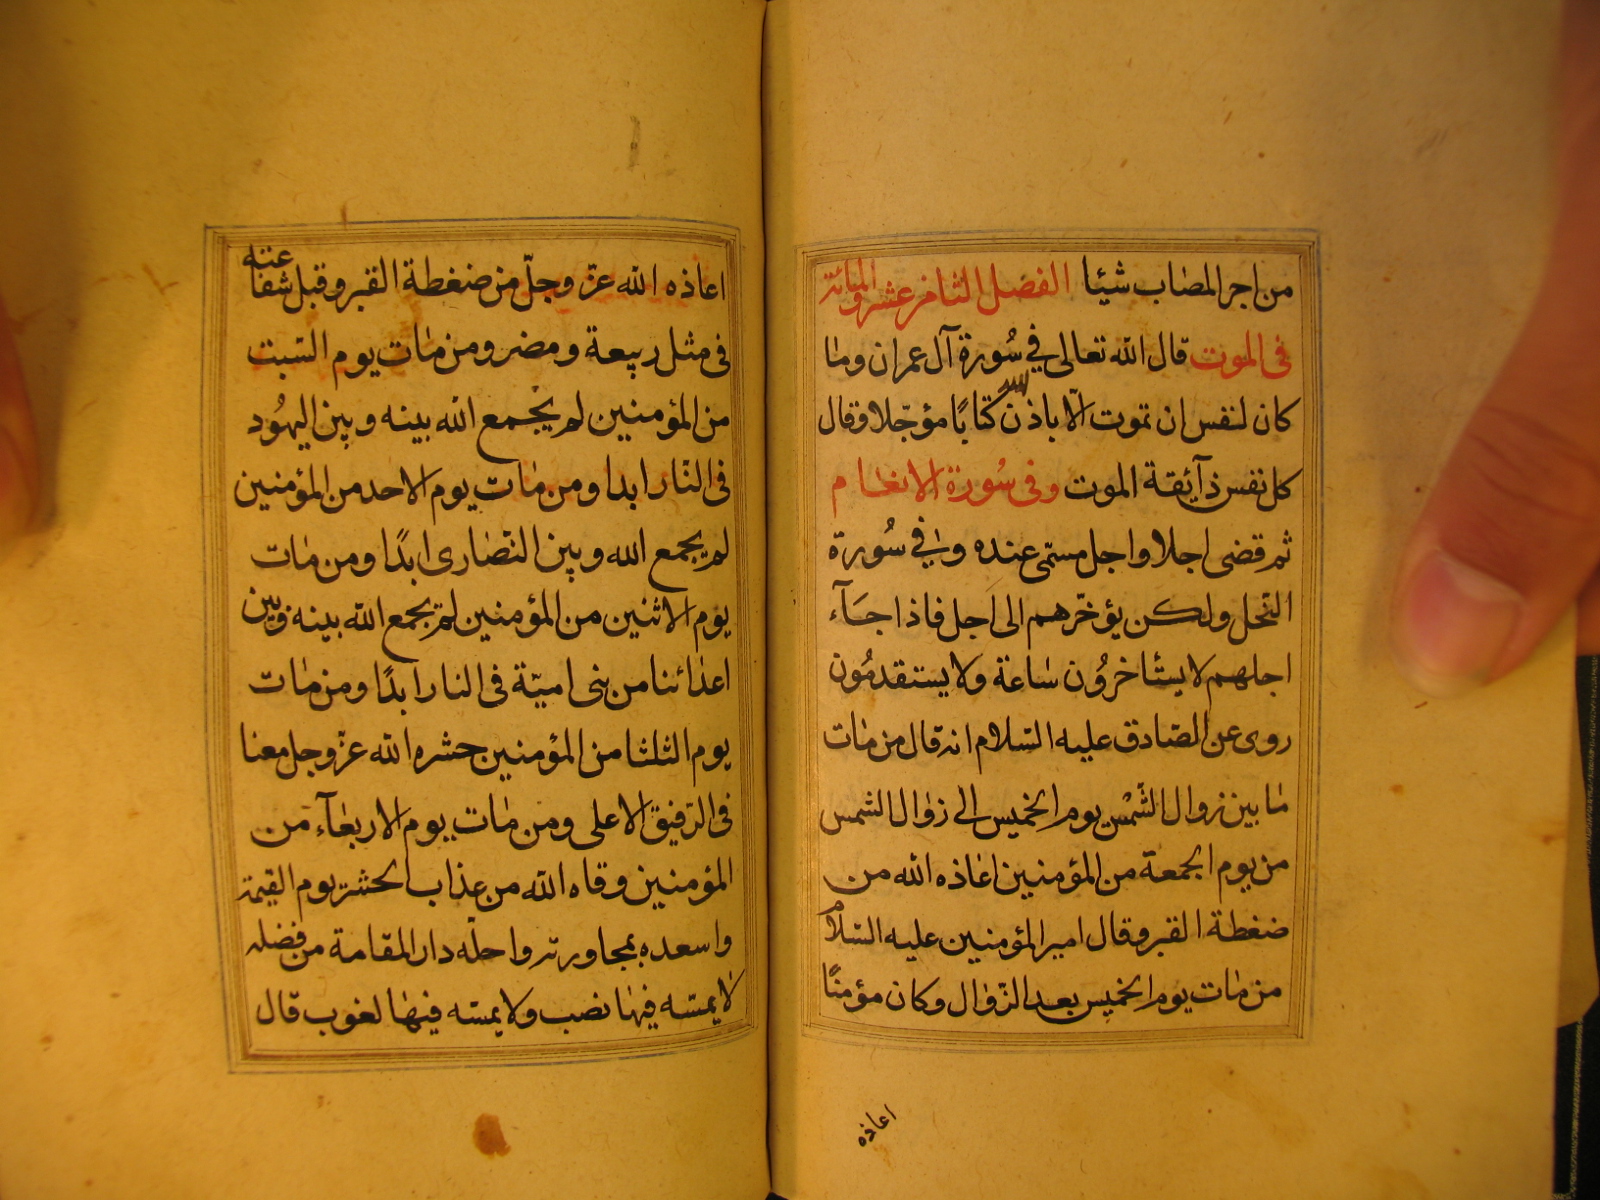 من اجر المصاب شيئا الفصل الثامن عشر والمائة
فى الموت قال الله تعالى في سُورة آل عمران وما
كان لنفس ان تموت الّا باذن الله كتابًا مؤجّلا وقال
كل نفس ذآئقة الموت وفى سُورة الانعام
ثم قضى اجلا واجل مسمّى عنده وفي سُورة
النّحل ولكن يؤخّرهم الى اَجل فاذا جَآء
اجلهم لا يستاخرُون ساعة ولا يستقدمُون
روى عن الصّادق عليه السّلام انه قال من مات
ما بين زوال الشّمْس يوم الخميس الى زوال الشمس
من يوم الجمعة من المؤمنين اعاذه الله من
ضغطة القبر وقال امير المؤمنين عليه السّلام
من مات يوم الخميس بعد الزّوال وكان مؤمنًا
اعاذه
اعاذه الله عزّ وجلّ من ضغطة القبر وقبل شفاعته
فى مثل ربيعة ومضر ومن مات يوم السّبت
من المؤمنين لم يجمع الله بينه وبين اليهُود
فى النّار ابدا ومن مات يوم الاحد من المؤمنين
لم يجمع الله وبين النّصارى ابدًا ومن مات
يوم الاثنين من المؤمنين لم يجمع الله بينه وبين
اعدائنا من بنى اميّة فى النار ابدًا ومن مات
يوم الثلثا من المؤمنين حشره الله عزّ وجل معنا
فى الرّفيق الاعلى ومن مات يوم الاربعآء من
المؤمنين وقاه الله من عذاب الحشر يوم القيمة
واسعده بمجاورته واحلّه دار المقامة من فضله
لا يمسّه فيها نصب ولا يمسّه فيها لغوب قال